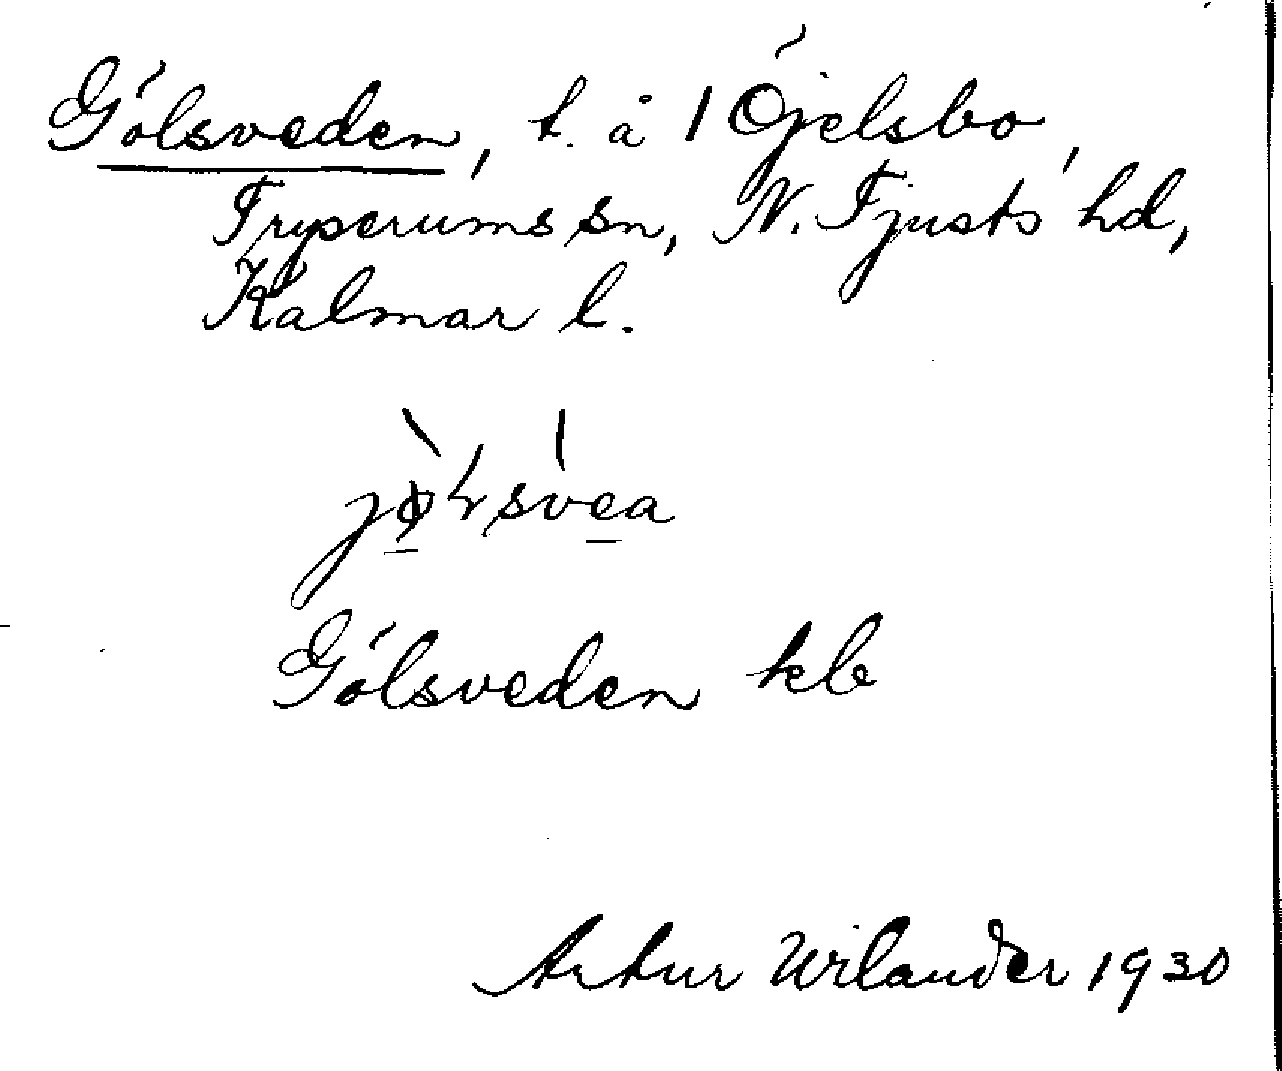 Gölsveden, t. å 1 Öjelsbo,
Tryserums sn, N. Tjusts hd,
Kalmar l.
Gölsveden kb
Artur Wilander 1930